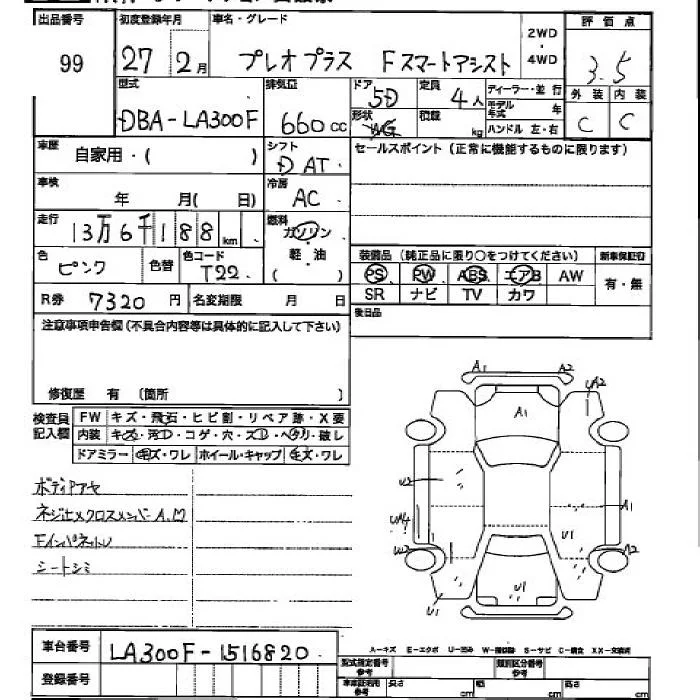 出品番号 初度登録年月 車名・グレード 2WD・4WD 評価点
99 27 2月 プレオプラス Fスマートアシスト 3.5
型式 排気量 ドア 定員 ディーラー・並行 外装 内装
DBA-LA300F 660cc 5D 4人 モデル年式 年 C C
形状 積載 kg ハンドル 左・右
車歴 自家用・( ) シフト DAT セールスポイント (正常に機能するものに限ります)
車検 年 月( 日) 冷房 AC
走行 13万6千188km 燃料 ガソリン・軽・油 ( )
色 ピンク 色替 色コード T22 装備品 (純正品に限り○をつけてください) 新車保証書
PS PW ABS エアB AW 有・無
SR ナビ TV カワ
R券 7320円 名変期限 月 日 後日品
注意事項申告欄 (不具合内容等は具体的に記入して下さい)
修復歴 有 (箇所 )
検査員記入欄 FW キズ・飛石・ヒビ割・リペア跡・X要
内装 キズ・汚レ・コゲ・穴・スレ・ヘタリ・破レ
ドアミラー キズ・ワレ ホイール・キャップ キズ・ワレ
A1 A2
A1 UA2
U2 A1
UA4 U1
W2 A2
U1 U1
ボディアヤ
ネジセメクロスメンバーA.M
Fインパネトレ
シートシミ
A-キズ E-エクボ U-凹み S-サビ
車台番号 LA300F-1516820 型式指定番号 参考 類別区分番号 参考
登録番号 参考 長さ cm 幅 cm 高さ cm